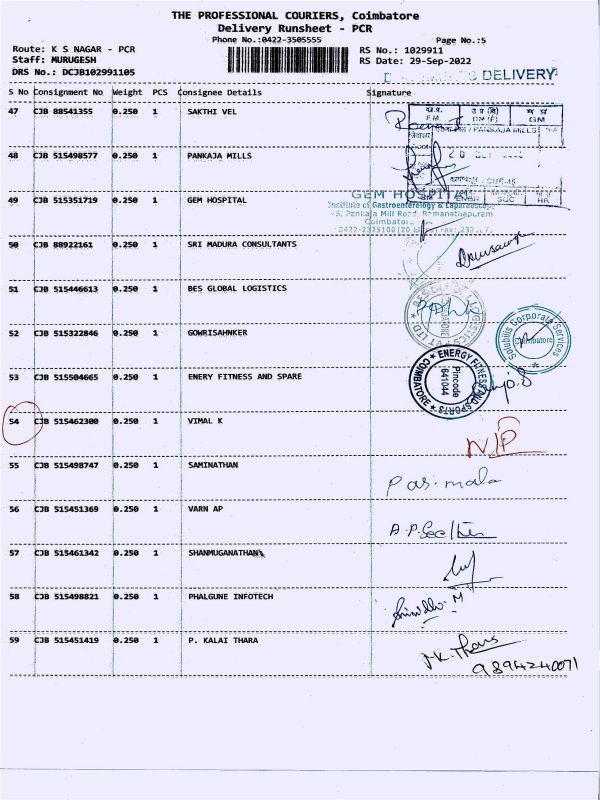 THE PROFESSIONAL COURIERS, Coimbatore
Delivery Runsheet - PCR
Phone No.:0422-3505555
Page No.:5
Route: K S NAGAR - PCR
RS No.: 1029911
Staff: MURUGESH
RS Date: 29-Sep-2022
DRS No.: DCJB102991105
DELIVERY
S No Consignment No Weight PCS Consignee Details Signature
47 CJB 88541355 0.250 1 SAKTHI VEL
F.M. DM(F) GM
PANKAJA MILLS
48 CJB 515498577 0.250 1 PANKAJA MILLS
49 CJB 515351719 0.250 1 GEM HOSPITAL
ENGR HR
GEM HOSPITAL
Institute of Gastroenterology & Laparoscopy
45, Pankaja Mill Road, Ramanathapuram
50 CJB 88922161 0.250 1 SRI MADURA CONSULTANTS
51 CJB 515446613 0.250 1 BES GLOBAL LOGISTICS
52 CJB 515322846 0.250 1 GOWRISAHNKER
Solubilis Corporate Services
Coimbatore
53 CJB 515504665 0.250 1 ENERY FITNESS AND SPARE
ENERGY FITNESS AND SPORTS
COIMBATORE
Pincode
641044
54 CJB 515462300 0.250 1 VIMAL K
N/P
55 CJB 515498747 0.250 1 SAMINATHAN
Pasimala
56 CJB 515451369 0.250 1 VARN AP
57 CJB 515461342 0.250 1 SHANMUGANATHAN
58 CJB 515498821 0.250 1 PHALGUNE INFOTECH
59 CJB 515451419 0.250 1 P. KALAI THARA
9894240071